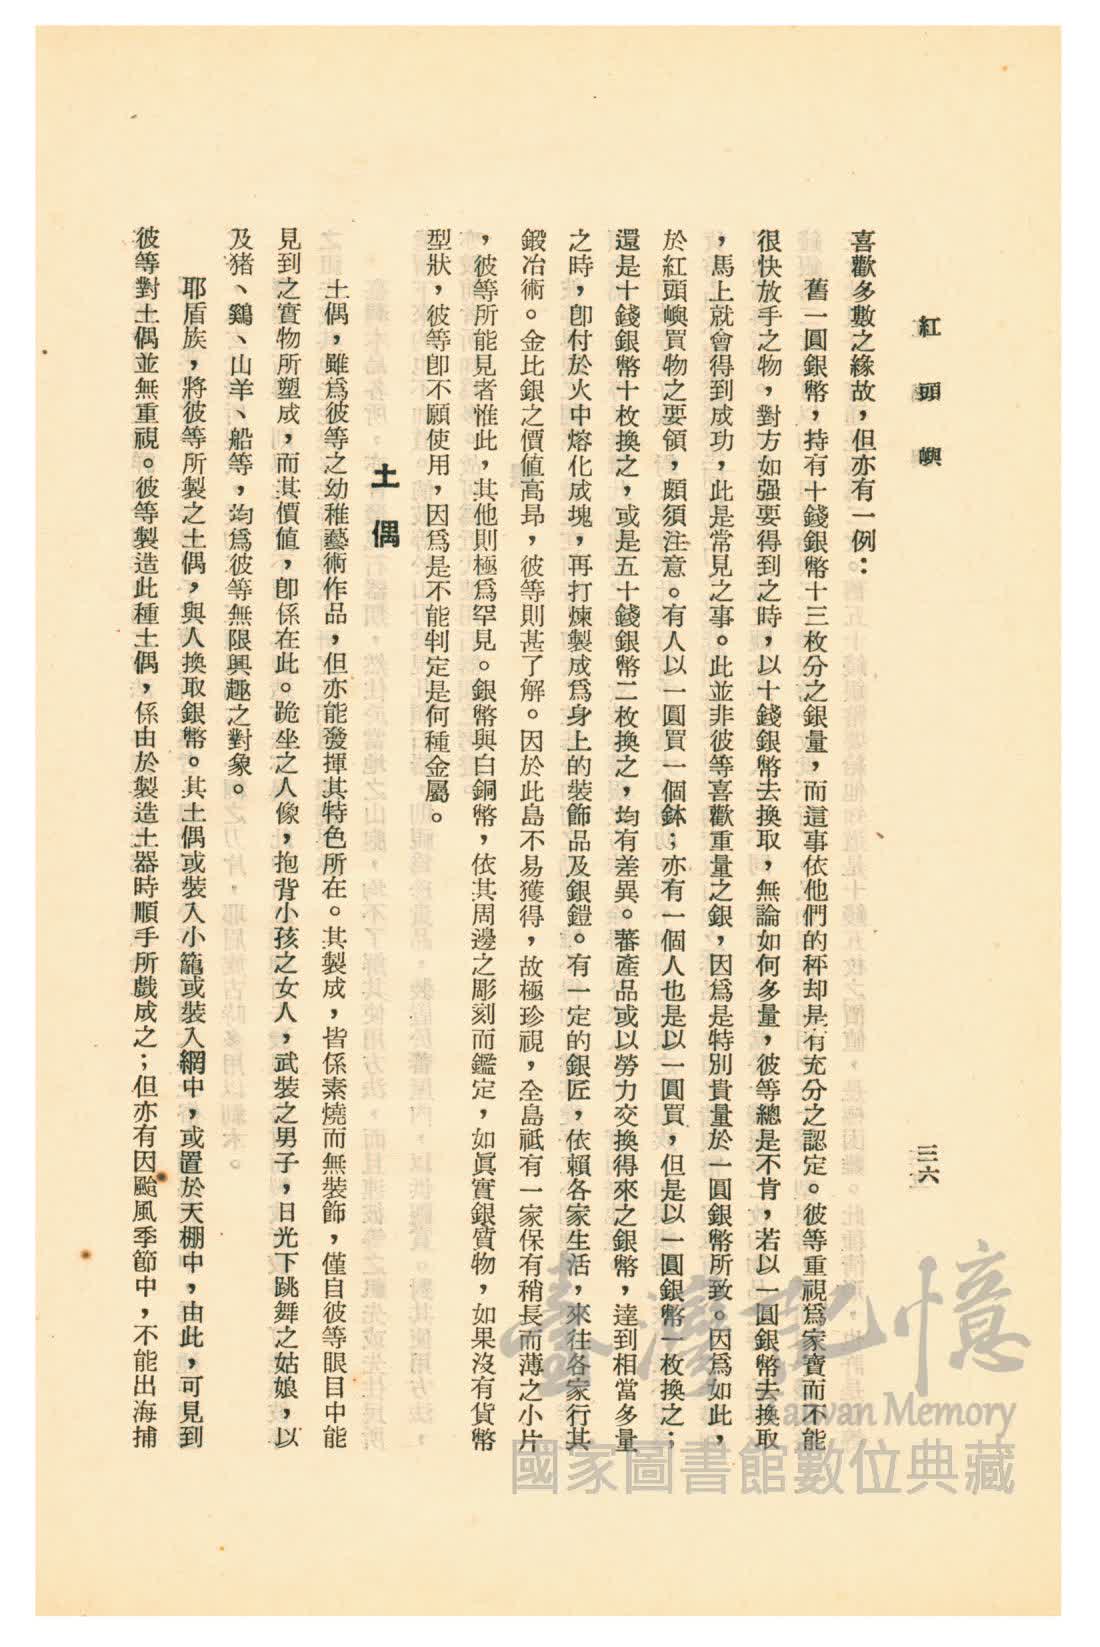 紅頭嶼
三六
喜歡多數之緣故，但亦有一例：
舊一圓銀幣，持有十錢銀幣十三枚分之銀量，而這事依他們的秤却是有充分之認定。彼等重視爲家寶而不能
很快放手之物，對方如强要得到之時，以十錢銀幣去換取，無論如何多量，彼等總是不肯，若以一圓銀幣去換取
，馬上就會得到成功，此是常見之事。此並非彼等喜歡重量之銀，因爲是特別貴量於一圓銀幣所致。因爲如此，
於紅頭嶼買物之要領，頗須注意。有人以一圓買一個鉢；亦有一個人也是以一圓買，但是以一圓銀幣一枚換之；
還是十錢銀幣十枚換之，或是五十錢銀幣二枚換之，均有差異。蕃產品或以勞力交換得來之銀幣，達到相當多量
之時，卽付於火中熔化成塊，再打煉製成爲身上的裝飾品及銀鎧。有一定的銀匠，依賴各家生活，來往各家行其
鍛冶術。金比銀之價值高昂，彼等則甚了解。因於此島不易獲得，故極珍視，全島祗有一家保有稍長而薄之小片
，彼等所能見者惟此，其他則極爲罕見。銀幣與白銅幣，依其周邊之彫刻而鑑定，如眞實銀質物，如果沒有貨幣
型狀，彼等卽不願使用，因爲是不能判定是何種金屬。
土偶
土偶，雖爲彼等之幼稚藝術作品，但亦能發揮其特色所在。其製成，皆係素燒而無裝飾，僅自彼等眼目中能
見到之實物所塑成，而其價值，卽係在此。跪坐之人像，抱背小孩之女人，武裝之男子，日光下跳舞之姑娘，以
及猪、鷄、山羊、船等，均爲彼等無限興趣之對象。
耶眉族，將彼等所製之土偶，與人換取銀幣。其土偶或裝入小籠或裝入網中，或置於天棚中，由此，可見到
彼等對土偶並無重視。彼等製造此種土偶，係由於製造土器時順手所戲成之；但亦有因颱風季節中，不能出海捕
臺灣記憶
Taiwan Memory
國家圖書館數位典藏